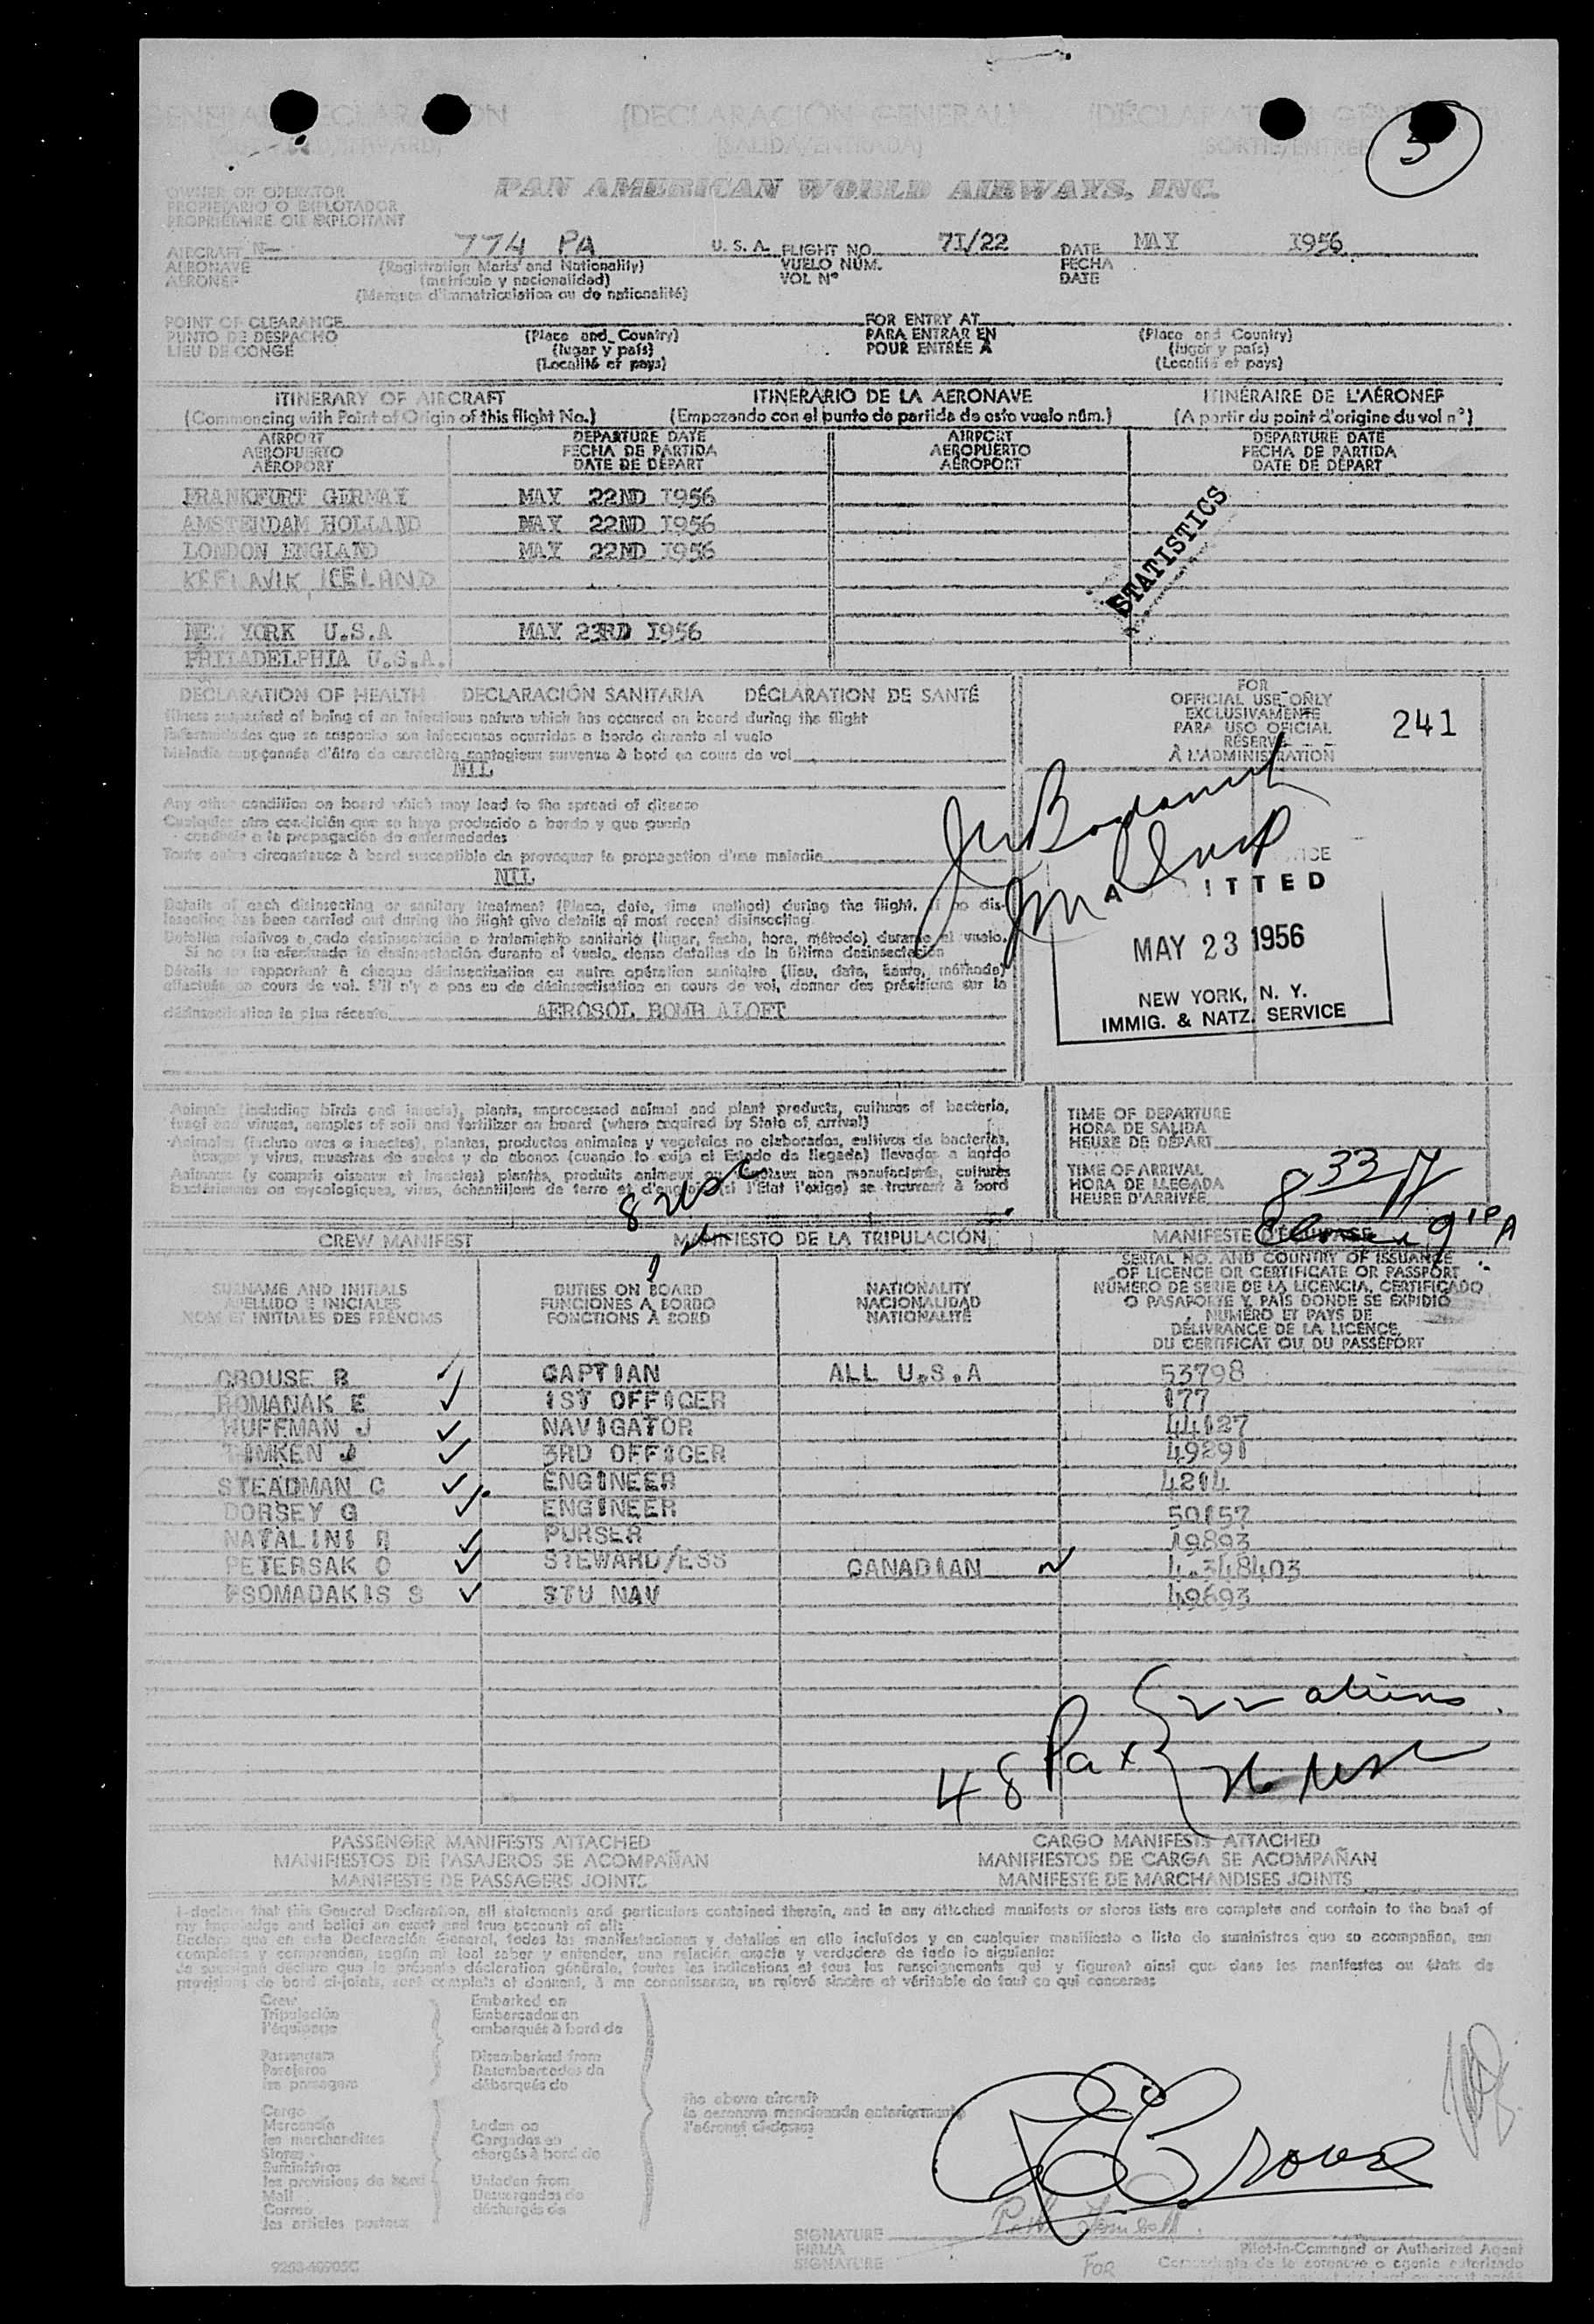 GENERAL DECLARATION (DECLARACIÓN GENERAL) (DÉCLARATION GÉNÉRALE)
(SALIDA/ENTRADA) (SORTIE/ENTRÉE)
5
OWNER OR OPERATOR
PROPIETARIO O EXPLOTADOR
PROPRIÉTAIRE OU EXPLOITANT
PAN AMERICAN WORLD AIRWAYS, INC.
AIRCRAFT N— 774 PA U. S. A. FLIGHT NO. 71/22 DATE MAY 1956
AERONAVE (Registration Marks and Nationality) VUELO NÚM. FECHA
AÉRONEF (matrícula y nacionalidad) VOL Nº DATE
(Marques d'immatriculation ou de nationalité)
POINT OF CLEARANCE FOR ENTRY AT
PUNTO DE DESPACHO (Place and Country) PARA ENTRAR EN (Place and Country)
LIEU DE CONGÉ (lugar y país) POUR ENTRÉE À (lugar y país)
(Localité et pays) (Localité et pays)
ITINERARY OF AIRCRAFT ITINERARIO DE LA AERONAVE ITINÉRAIRE DE L'AÉRONEF
(Commencing with Point of Origin of this flight No.) (Empezando con el punto de partida de este vuelo núm.) (A partir du point d'origine du vol nº)
AIRPORT DEPARTURE DATE AIRPORT DEPARTURE DATE
AEROPUERTO FECHA DE PARTIDA AEROPUERTO FECHA DE PARTIDA
AÉROPORT DATE DE DÉPART AÉROPORT DATE DE DÉPART
FRANKFURT GERMAY MAY 22ND 1956
AMSTERDAM HOLLAND MAY 22ND 1956
LONDON ENGLAND MAY 22ND 1956
KEFLAVIK ICELAND
STATISTICS
NEW YORK U.S.A MAY 23RD 1956
PHILADELPHIA U.S.A.
DECLARATION OF HEALTH DECLARACIÓN SANITARIA DÉCLARATION DE SANTÉ
Illness suspected of being of an infectious nature which has occured on board during the flight
Enfermedades que se sospecha son infecciosas ocurridas a bordo durante el vuelo
Maladie soupçonnée d'être de caractère contagieux survenue à bord en cours de vol
NIL
FOR
OFFICIAL USE ONLY
EXCLUSIVAMENTE
PARA USO OFICIAL
RÉSERVÉ
À L'ADMINISTRATION
241
Any other condition on board which may lead to the spread of disease
Cualquier otra condición que se haya producido a bordo y que pueda
conducir a la propagación de enfermedades
Toute autre circonstance à bord susceptible de provoquer la propagation d'une maladie
NIL
Details of each disinsecting or sanitary treatment (Place, date, time method) during the flight. If no dis-
insecting has been carried out during the flight give details of most recent disinsecting
Detalles relativos a cada desinsectación o tratamiento sanitario (lugar, fecha, hora, método) durante el vuelo.
Si no se ha efectuado la desinsectación durante el vuelo, dense detalles de la última desinsectación
Détails se rapportant à chaque désinsectisation ou autre opération sanitaire (lieu, date, heure, méthode)
effectuée en cours de vol. S'il n'y a pas eu de désinsectisation en cours de vol, donner des précisions sur la
désinsectisation la plus récente AEROSOL BOMB ALOFT
ITTED
MAY 23 1956
NEW YORK, N. Y.
IMMIG. & NATZ. SERVICE
Animals (including birds and insects), plants, unprocessed animal and plant products, cultures of bacteria,
fungi and viruses, samples of soil and fertilizer on board (where required by State of arrival)
Animales (incluso aves e insectos), plantas, productos animales y vegetales no elaborados, cultivos de bacterias,
hongos y virus, muestras de suelos y de abonos (cuando lo exija el Estado de llegada) llevados a bordo
Animaux (y compris oiseaux et insectes) plantes, produits animaux ou végétaux non manufacturés, cultures
bactériennes ou mycologiques, virus, échantillons de terre et d'engrais (si l'État l'exige) se trouvant à bord
TIME OF DEPARTURE
HORA DE SALIDA
HEURE DE DÉPART
TIME OF ARRIVAL
HORA DE LLEGADA
HEURE D'ARRIVÉE
8 33
8 usc
CREW MANIFEST MANIFIESTO DE LA TRIPULACIÓN MANIFESTE D'ÉQUIPAGE
SURNAME AND INITIALS DUTIES ON BOARD NATIONALITY SERIAL NO. AND COUNTRY OF ISSUANCE
APELLIDO E INICIALES FUNCIONES A BORDO NACIONALIDAD OF LICENCE OR CERTIFICATE OR PASSPORT
NOM ET INITIALES DES PRÉNOMS FONCTIONS À BORD NATIONALITÉ NÚMERO DE SERIE DE LA LICENCIA, CERTIFICADO
O PASAPORTE Y PAÍS DONDE SE EXPIDIÓ
NUMÉRO ET PAYS DE
DÉLIVRANCE DE LA LICENCE,
DU CERTIFICAT OU DU PASSEPORT
CROUSE R CAPTIAN ALL U.S.A 53798
ROMANAK E 1ST OFFICER 177
HUFFMAN J NAVIGATOR 44127
TIMKEN J 3RD OFFICER 49291
STEADMAN C ENGINEER 4214
DORSEY G ENGINEER 50157
NATALINI R PURSER 19893
PETERSAK O STEWARD/ESS CANADIAN 4.348403
PSOMADAKIS S STU NAV 49693
48 Pax { 22 aliens
26 usc
PASSENGER MANIFESTS ATTACHED CARGO MANIFESTS ATTACHED
MANIFIESTOS DE PASAJEROS SE ACOMPAÑAN MANIFIESTOS DE CARGA SE ACOMPAÑAN
MANIFESTE DE PASSAGERS JOINTS MANIFESTE DE MARCHANDISES JOINTS
I declare that this General Declaration, all statements and particulars contained therein, and in any attached manifests or stores lists are complete and contain to the best of
my knowledge and belief an exact and true account of all:
Declaro que en esta Declaración General, todas las manifestaciones y detalles en ella incluídos y en cualquier manifiesto o lista de suministros que se acompañan, son
completos y comprenden, según mi leal saber y entender, una relación exacta y verdadera de todo lo siguiente:
Je soussigné déclare que la présente déclaration générale, toutes les indications et tous les renseignements qui y figurent ainsi que dans les manifestes ou états de
provisions de bord ci-joints, sont complets et donnent, à ma connaissance, un relevé sincère et véritable de tout ce qui concerne:
Crew Embarked on
Tripulación Embarcados en
l'équipage embarqués à bord de
Passengers Disembarked from
Pasajeros Desembarcados de
les passagers débarqués de
the above aircraft
la aeronave mencionada anteriormente
l'aéronef ci-dessus
Cargo
Mercancía Laden on
les marchandises Cargados en
Stores chargés à bord de
Suministros
les provisions de bord Unladen from
Mail Descargados de
Correo déchargés de
les articles postaux
SIGNATURE
FIRMA
SIGNATURE
FOR
Pilot-in-Command or Authorized Agent
Comandante de la aeronave o agente autorizado